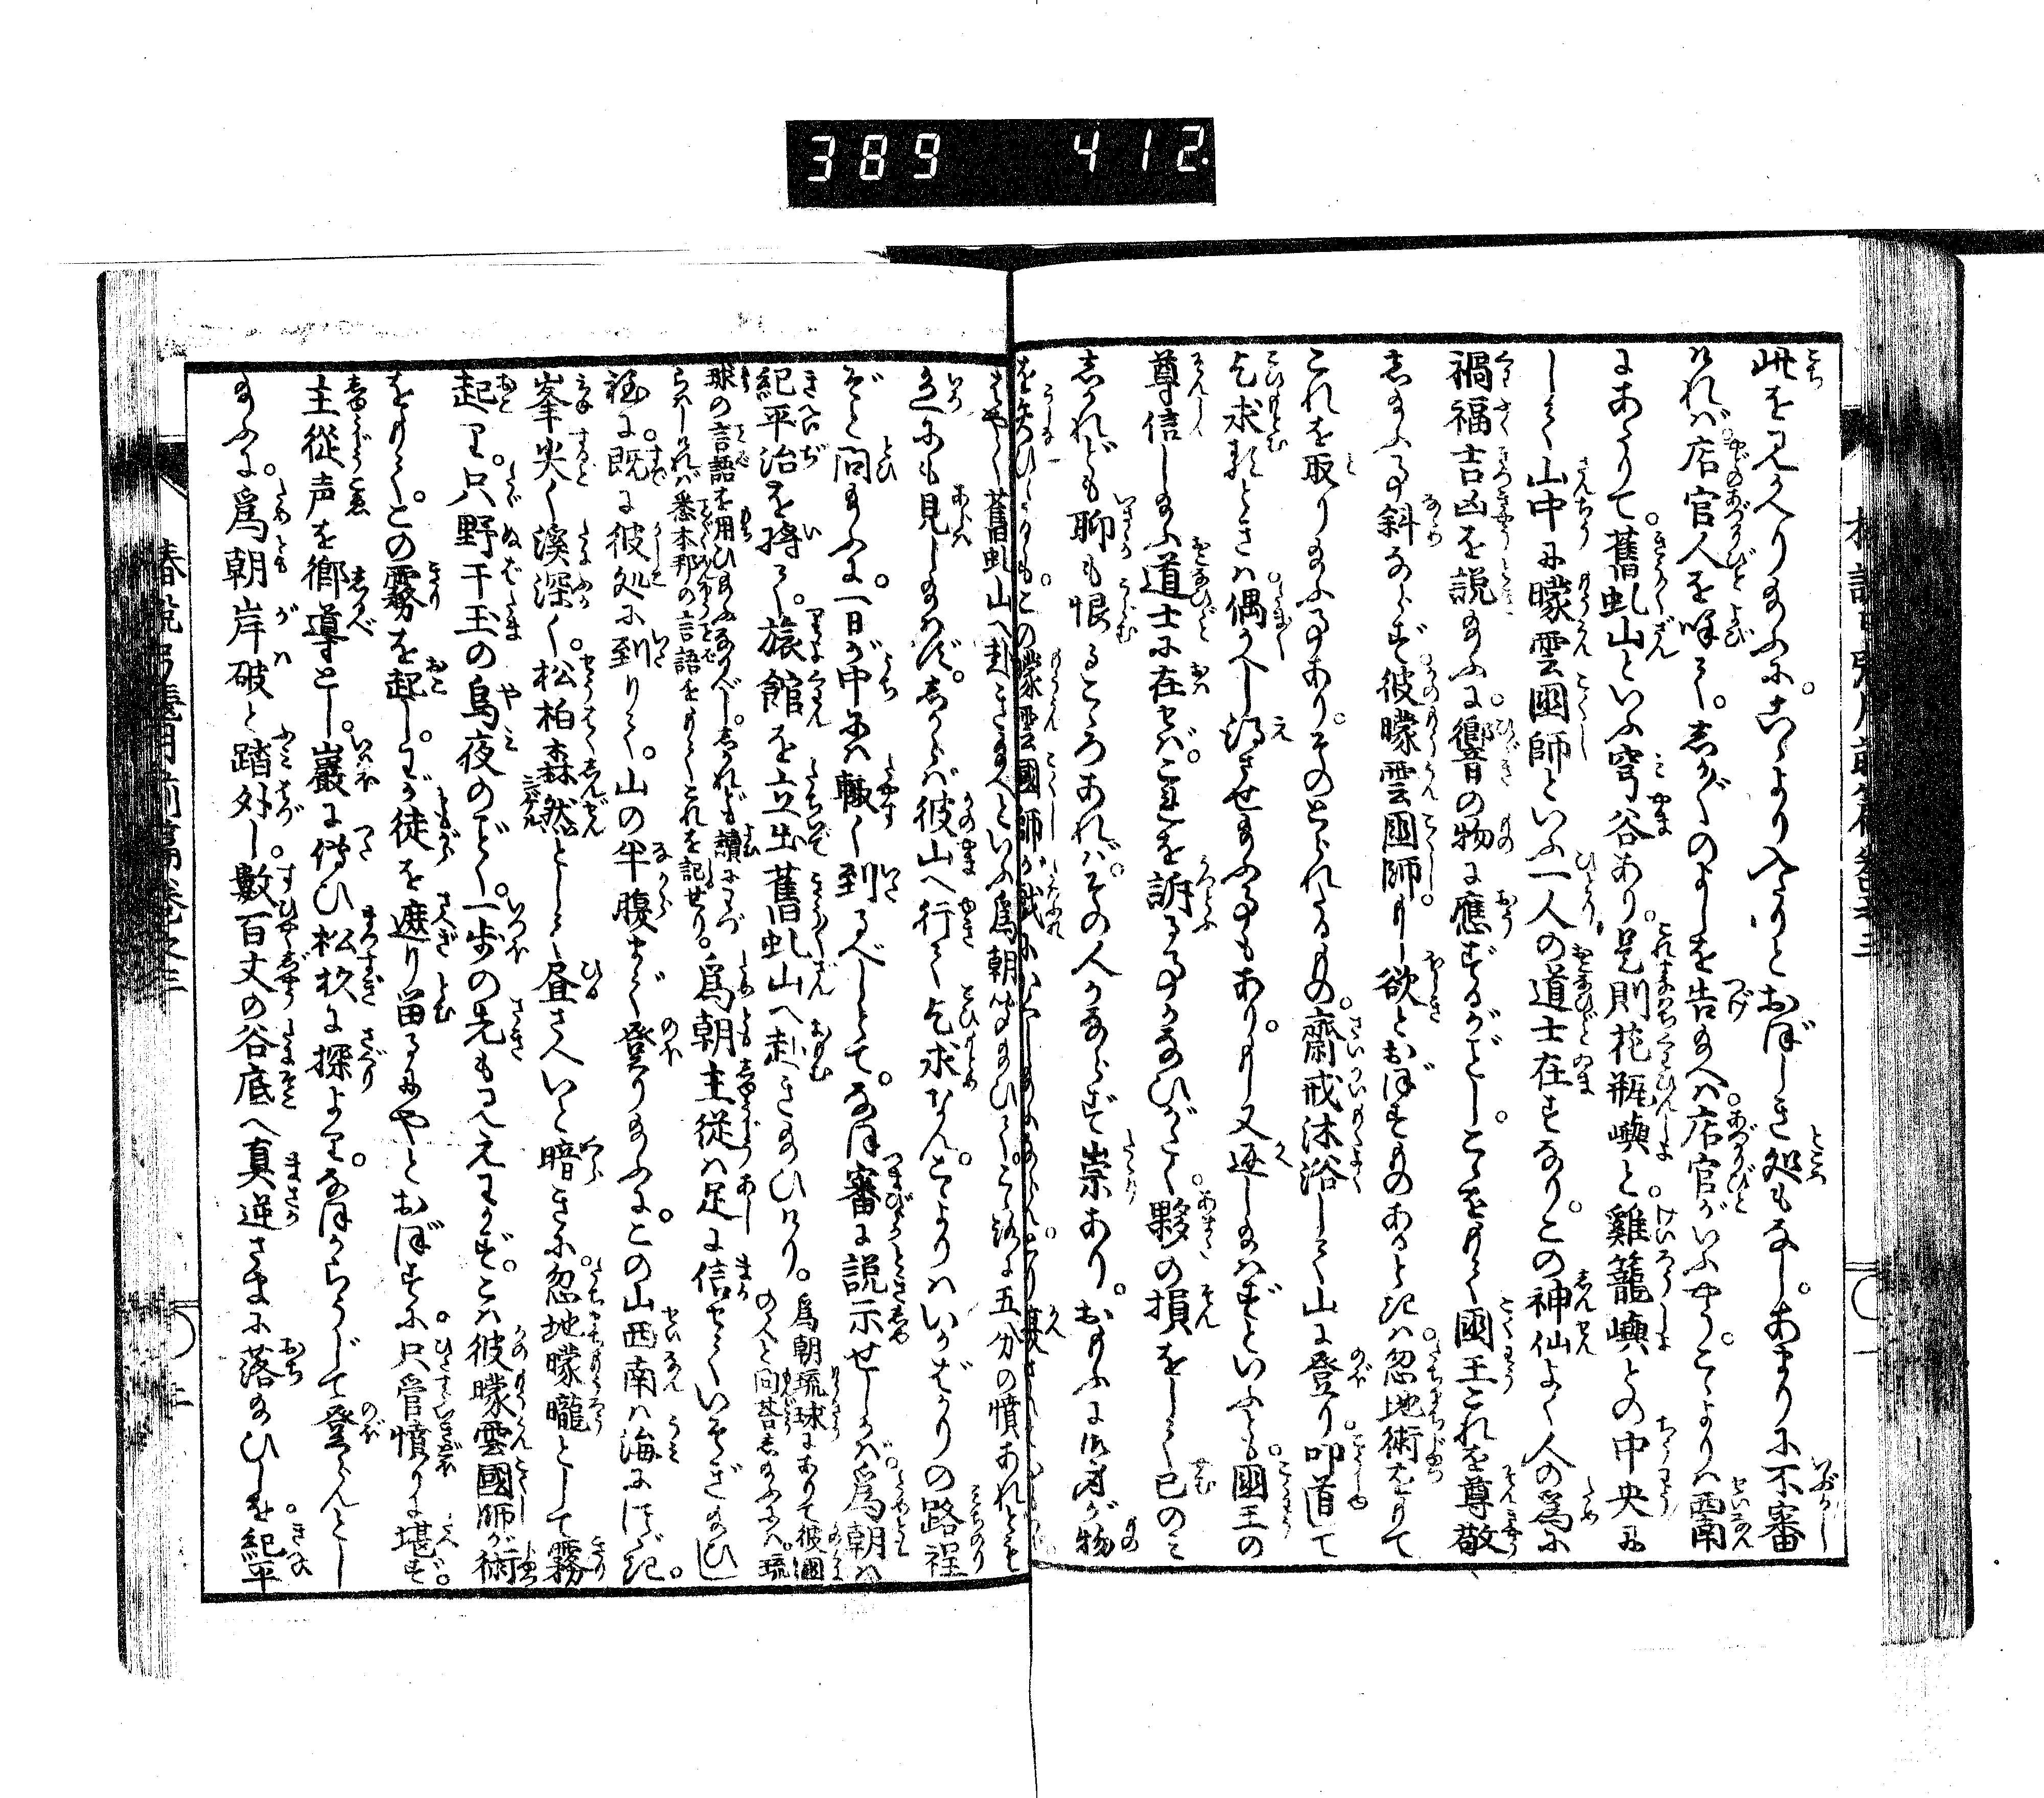 389 412
此を見かへり給ふに。こゝより入たりとおぼしき処もなし。あまりに不審
ければ。店官人を呼て。しか〴〵のよしを告給へば。店官がいふやう。こゝよりは西南
にあたりて。舊虬山といふ穹谷あり。是則花瓶嶼と。雞籠嶼との中央に
して。山中に曚雲國師といふ。一人の道士在すなり。この神仙よく人の為に
禍福吉凶を説給ふに。響の物に應ずるがごとし。こゝをもて國王これを尊敬
し給ふ事斜ならず。彼曚雲國師もし欲とおぼすものあるときは。忽地術をもて
これを取り給ふ事あり。そのとられたるもの。齋戒沐浴して山に登り。叩首て
乞求るときは。偶かへし得させ給ふ事もあり。もし又返し給はずといふとも。國王の
尊信し給ふ道士に在せば。これを訴る事かなひがたく。夥の損をして已のみ
しかれども聊も恨るこゝろあれば。その人かならず祟あり。おもふに御身が物
を失ひしも。この曚雲國師が
はやく舊虬山へ赴き給へといふ。為朝皆聞給ひて。こゝろに五分の憤あれども
色にも見し給はず。しからば彼山へ行て乞求なん。こゝよりはいかばかりの路程
ぞと問給ふに。一日が中には輙く到るべしとて。なほ審に説示せしかば。為朝は
紀平治を將て。旅館を立出舊虬山へ赴き給ひけり。為朝琉球にありて彼國の人と問答し給ふには。琉
球の言語を用ひ給ふなるべし。しかれども讀にわづらはしければ。悉本邦の言語をもてこれを記せり。為朝主従は足に信せていそぎ給ひし
程に。既に彼処に到りて。山の半腹まで登り給ふに。この山西南は海にほど近。
峯尖く溪深く。松柏森然として。昼さへいと暗きに。忽地曚曨として霧
起り。只野干玉の烏夜のごとく。一歩の先も見えわかず。こは彼曚雲國師が術
をもて。この霧を起し。わが徒を遮り留るにやとおぼすに。只管憤りに堪ず。
主從声を郷導とし。巖に傳ひ松杉に探より。なほからうじて登らんとし
給ふに。為朝岸破と踏外し。數百丈の谷底へ真逆さまに落給ひしを。紀平